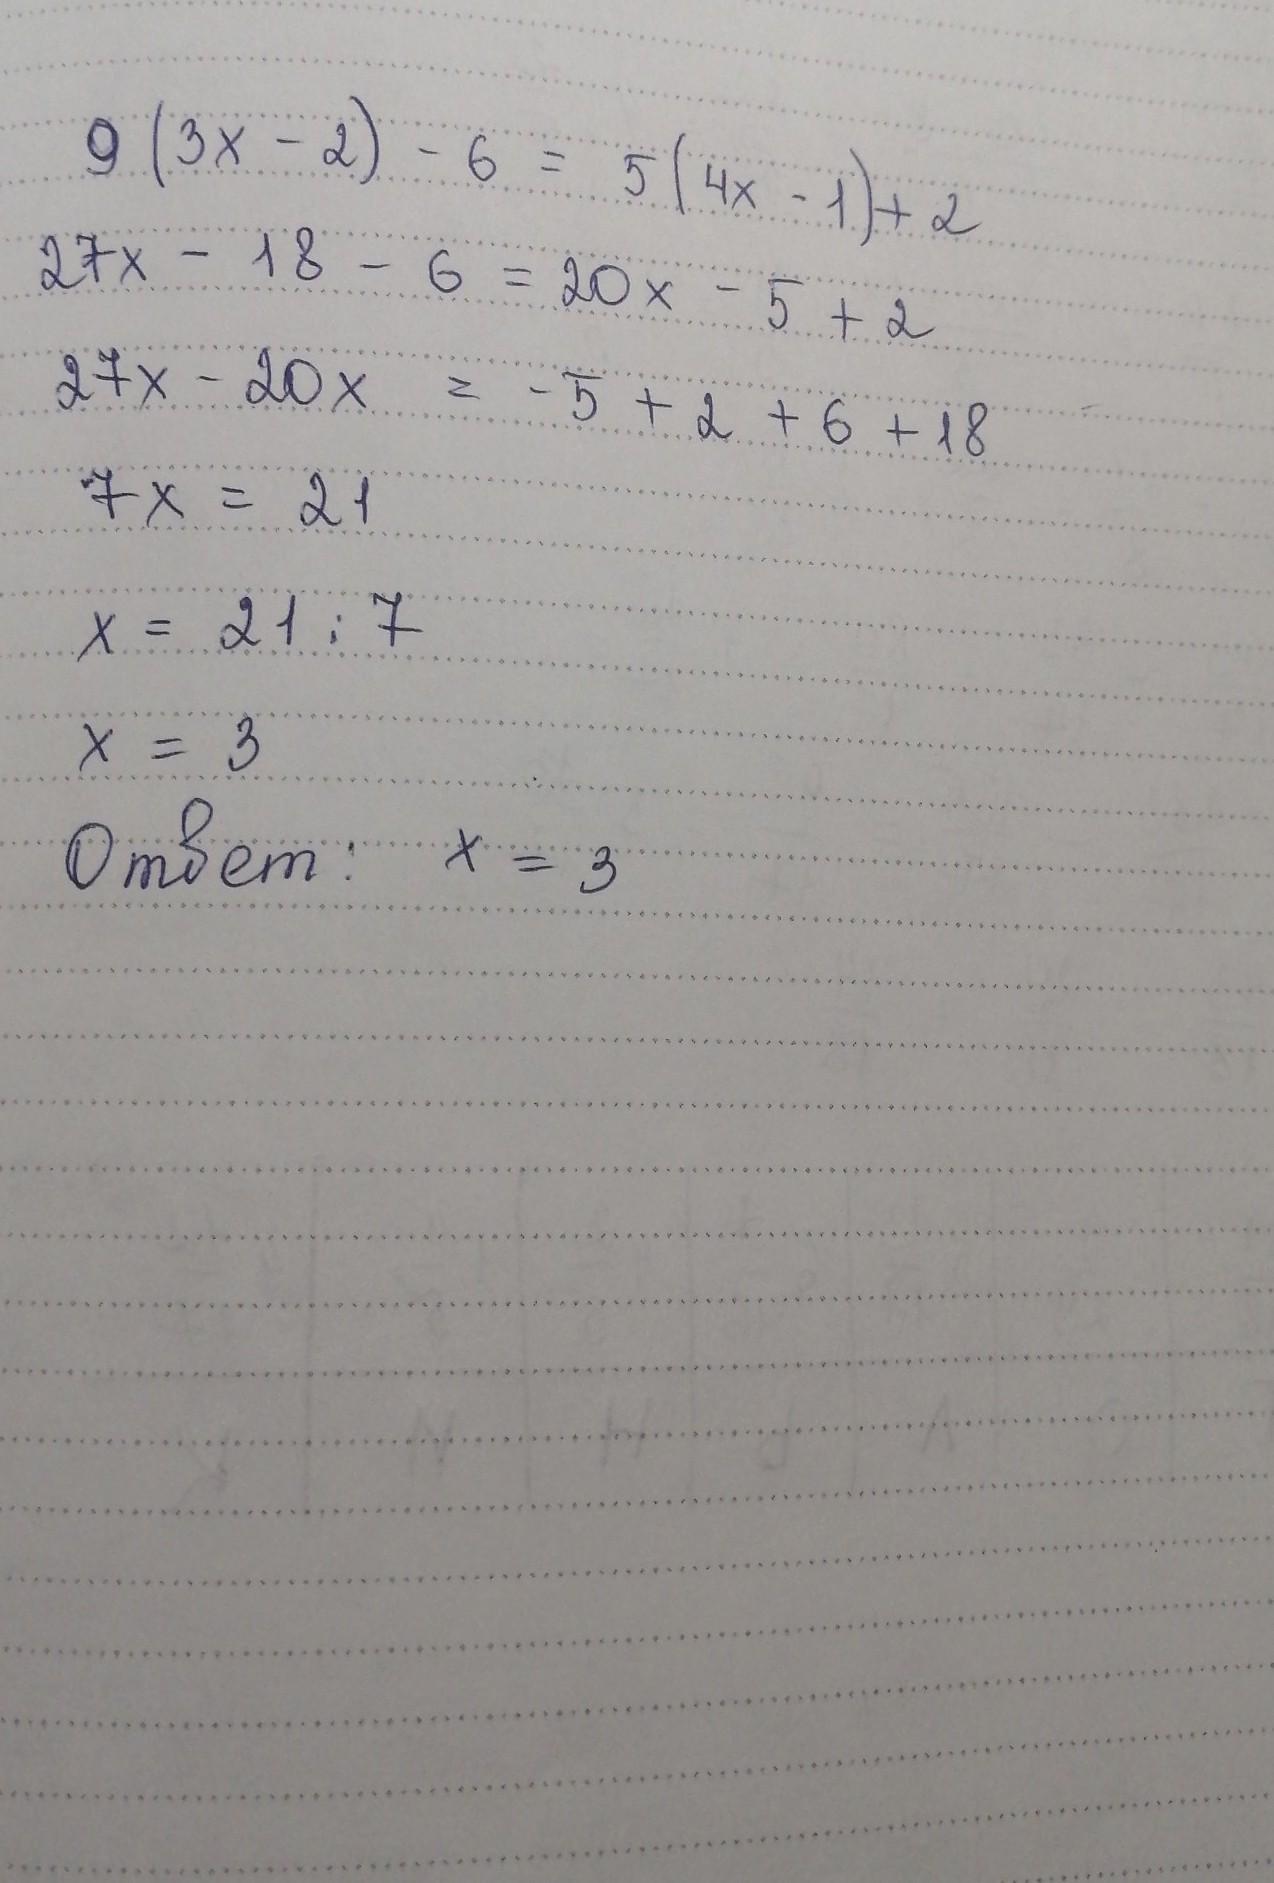 9(3x - 2) - 6 = 5(4x - 1) + 2
27x - 18 - 6 = 20x - 5 + 2
27x - 20x = -5 + 2 + 6 + 18
7x = 21
x = 21 : 7
x = 3
Ответ: x = 3